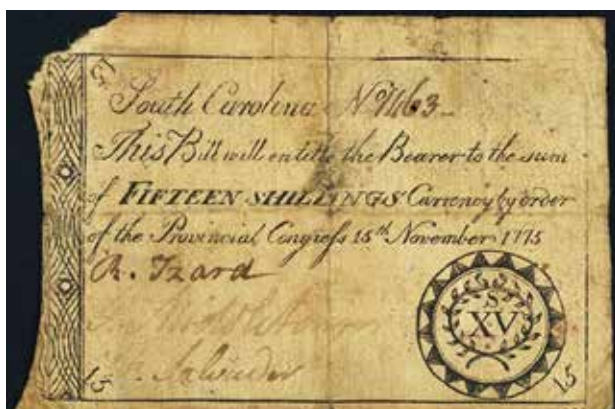 15
South Carolina Nº 1463
This Bill will entitle the Bearer to the sum
of FIFTEEN SHILLINGS Currency by order
of the Provincial Congress 15th November 1775
R. Izard
S
XV
15
15